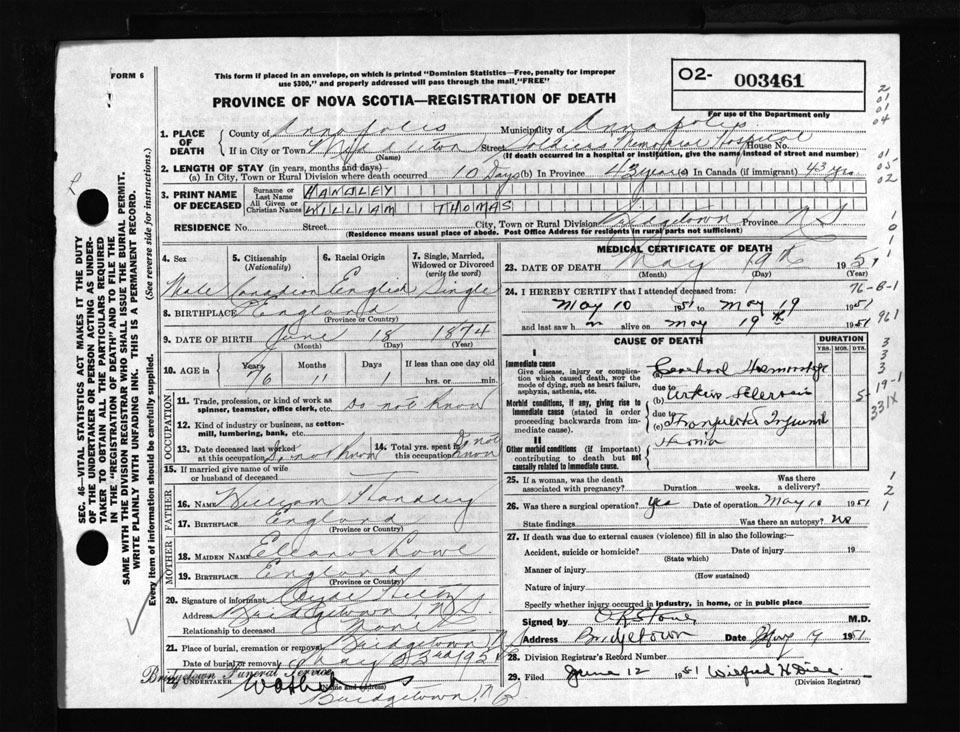 FORM 6
This form if placed in an envelope, on which is printed "Dominion Statistics—Free, penalty for improper
use $300," and properly addressed will pass through the mail "FREE"
O2- 003461
For use of the Department only
PROVINCE OF NOVA SCOTIA—REGISTRATION OF DEATH
1. PLACE OF DEATH
County of Annapolis Municipality of Annapolis
If in City or Town Middleton Street Soldiers Memorial Hospital House No.
(Name) (If death occurred in a hospital or institution, give the name instead of street and number)
2. LENGTH OF STAY (in years, months and days)
(a) In City, Town or Rural Division where death occurred 10 Days (b) In Province 43 years (c) In Canada (if immigrant) 43 yrs
3. PRINT NAME OF DECEASED
Surname or Last Name HANDLEY
All Given or Christian Names WILLIAM THOMAS
RESIDENCE No. Street City, Town or Rural Division Bridgetown Province N S
(Residence means usual place of abode. Post Office Address for residents in rural parts not sufficient)
4. Sex Male
5. Citizenship (Nationality) Canadian
6. Racial Origin English
7. Single, Married, Widowed or Divorced (write the word) Single
8. BIRTHPLACE England
(Province or Country)
9. DATE OF BIRTH June 18 1874
(Month) (Day) (Year)
10. AGE in Years 76 Months 11 Days 1 If less than one day old hrs. or min.
OCCUPATION
11. Trade, profession, or kind of work as spinner, teamster, office clerk, etc. Do not know
12. Kind of industry or business, as cotton-mill, lumbering, bank, etc.
13. Date deceased last worked at this occupation Do not know
14. Total yrs. spent in this occupation Do not know
15. If married give name of wife or husband of deceased
FATHER
16. Name William Handley
17. BIRTHPLACE England
(Province or Country)
MOTHER
18. MAIDEN NAME Eleanor Lowe
19. BIRTHPLACE England
(Province or Country)
20. Signature of informant
Address Bridgetown N.S.
Relationship to deceased None
21. Place of burial, cremation or removal Bridgetown N.S.
Date of burial or removal May 23rd 195
Bridgetown Funeral Service
22. UNDERTAKER
(Name and address)
Bridgetown, N.S.
MEDICAL CERTIFICATE OF DEATH
23. DATE OF DEATH May 19th 1951
(Month) (Day) (Year)
24. I HEREBY CERTIFY that I attended deceased from:
May 10 1951 to May 19 1951
and last saw h m alive on May 19th 1951
CAUSE OF DEATH
DURATION
YRS. MOS. DYS.
I
Immediate cause
Give disease, injury or complication which caused death, NOT the mode of dying, such as heart failure, asphyxia, asthenia, etc.
(a) Cerebral Hemorrhage
due to
Morbid conditions, if any, giving rise to immediate cause (stated in order proceeding backwards from immediate cause).
(b) Arterio Sclerosis
due to
(c) Strangulated Inguinal Hernia
II
Other morbid conditions (if important) contributing to death but not causally related to immediate cause.
25. If a woman, was the death associated with pregnancy? Duration weeks. Was there a delivery?
26. Was there a surgical operation? yes Date of operation May 10 1951
State findings Was there an autopsy? no
27. If death was due to external causes (violence) fill in also the following:—
Accident, suicide or homicide? Date of injury 19
(State which)
Manner of injury
(How sustained)
Nature of injury
Specify whether injury occurred in industry, in home, or in public place
Signed by M.D.
Address Bridgetown Date May 19 1951
28. Division Registrar's Record Number
29. Filed June 12 1951
(Division Registrar)
76-B-1
961
3
3
3
19-1
331X
2
01
01
04
01
05
02
1
0
1
0
1
1
2
1
SEC. 46—VITAL STATISTICS ACT MAKES IT THE DUTY
OF THE UNDERTAKER OR PERSON ACTING AS UNDERTAKER
TO OBTAIN ALL THE PARTICULARS REQUIRED
IN THE "REGISTRATION OF DEATH" AND TO FILE THE
SAME WITH THE DIVISION REGISTRAR WHO SHALL ISSUE THE BURIAL PERMIT.
WRITE PLAINLY WITH UNFADING INK. THIS IS A PERMANENT RECORD.
Every item of information should be carefully supplied. (See reverse side for instructions.)